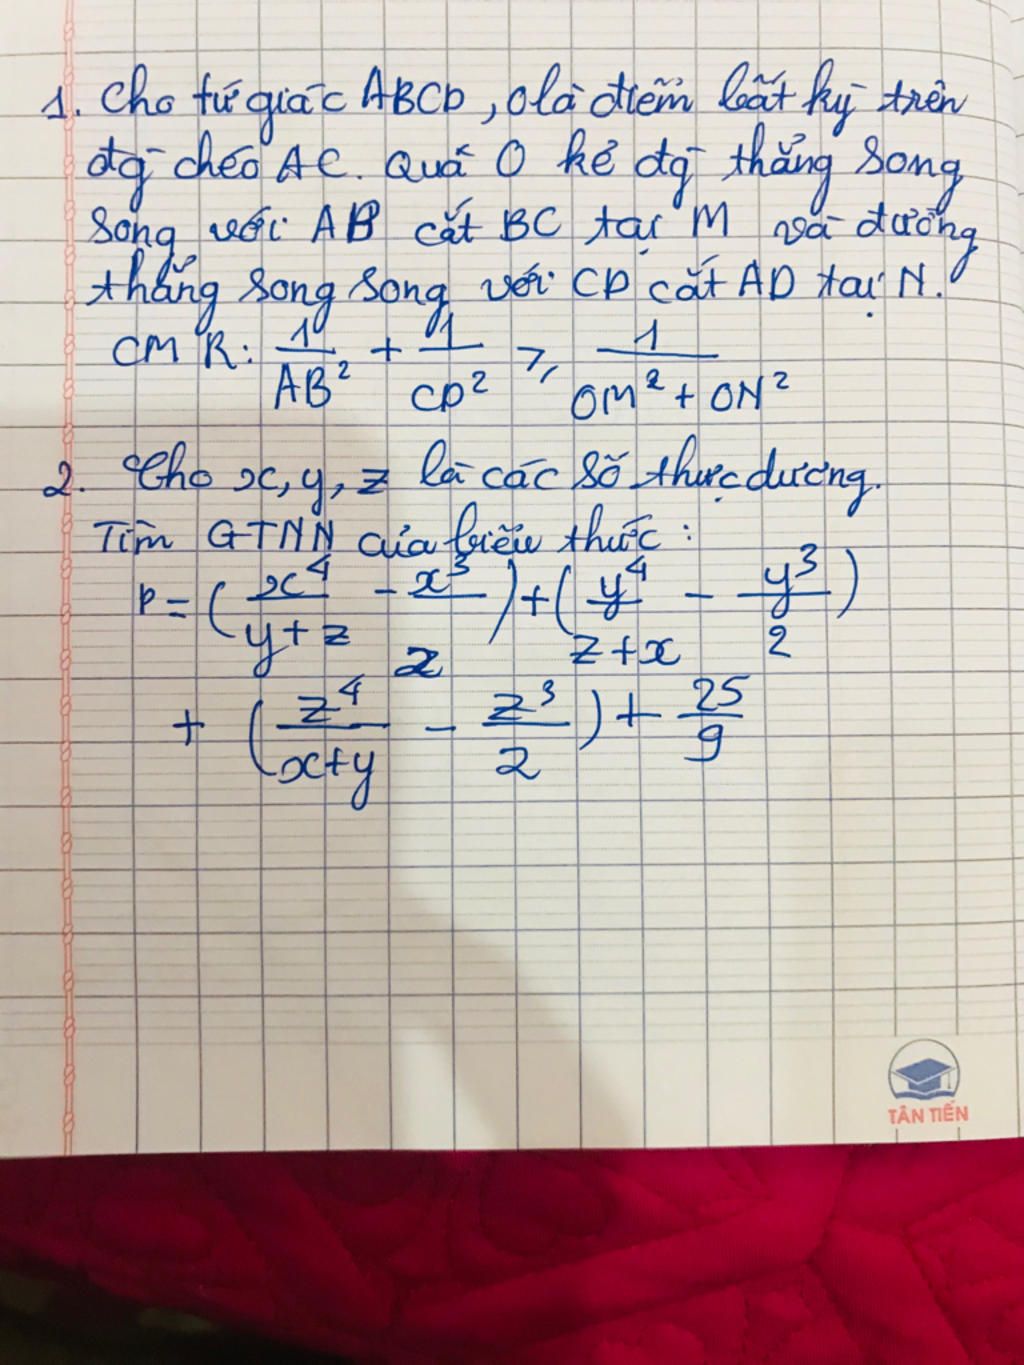 1. Cho tứ giác ABCD, O là điểm bất kỳ trên
đg chéo AC. Quá O kẻ đg thẳng song
song với AB cắt BC tại M và đường
thẳng song song với CD cắt AD tại N.
CMR: 1/AB² + 1/CD² ≥ 1/(OM² + ON²)
2. Cho x, y, z là các số thực dương.
Tìm GTNN của biểu thức:
P = (x⁴/(y+z) - x³/2) + (y⁴/(z+x) - y³/2)
+ (z⁴/(x+y) - z³/2) + 25/9
TÂN TIẾN